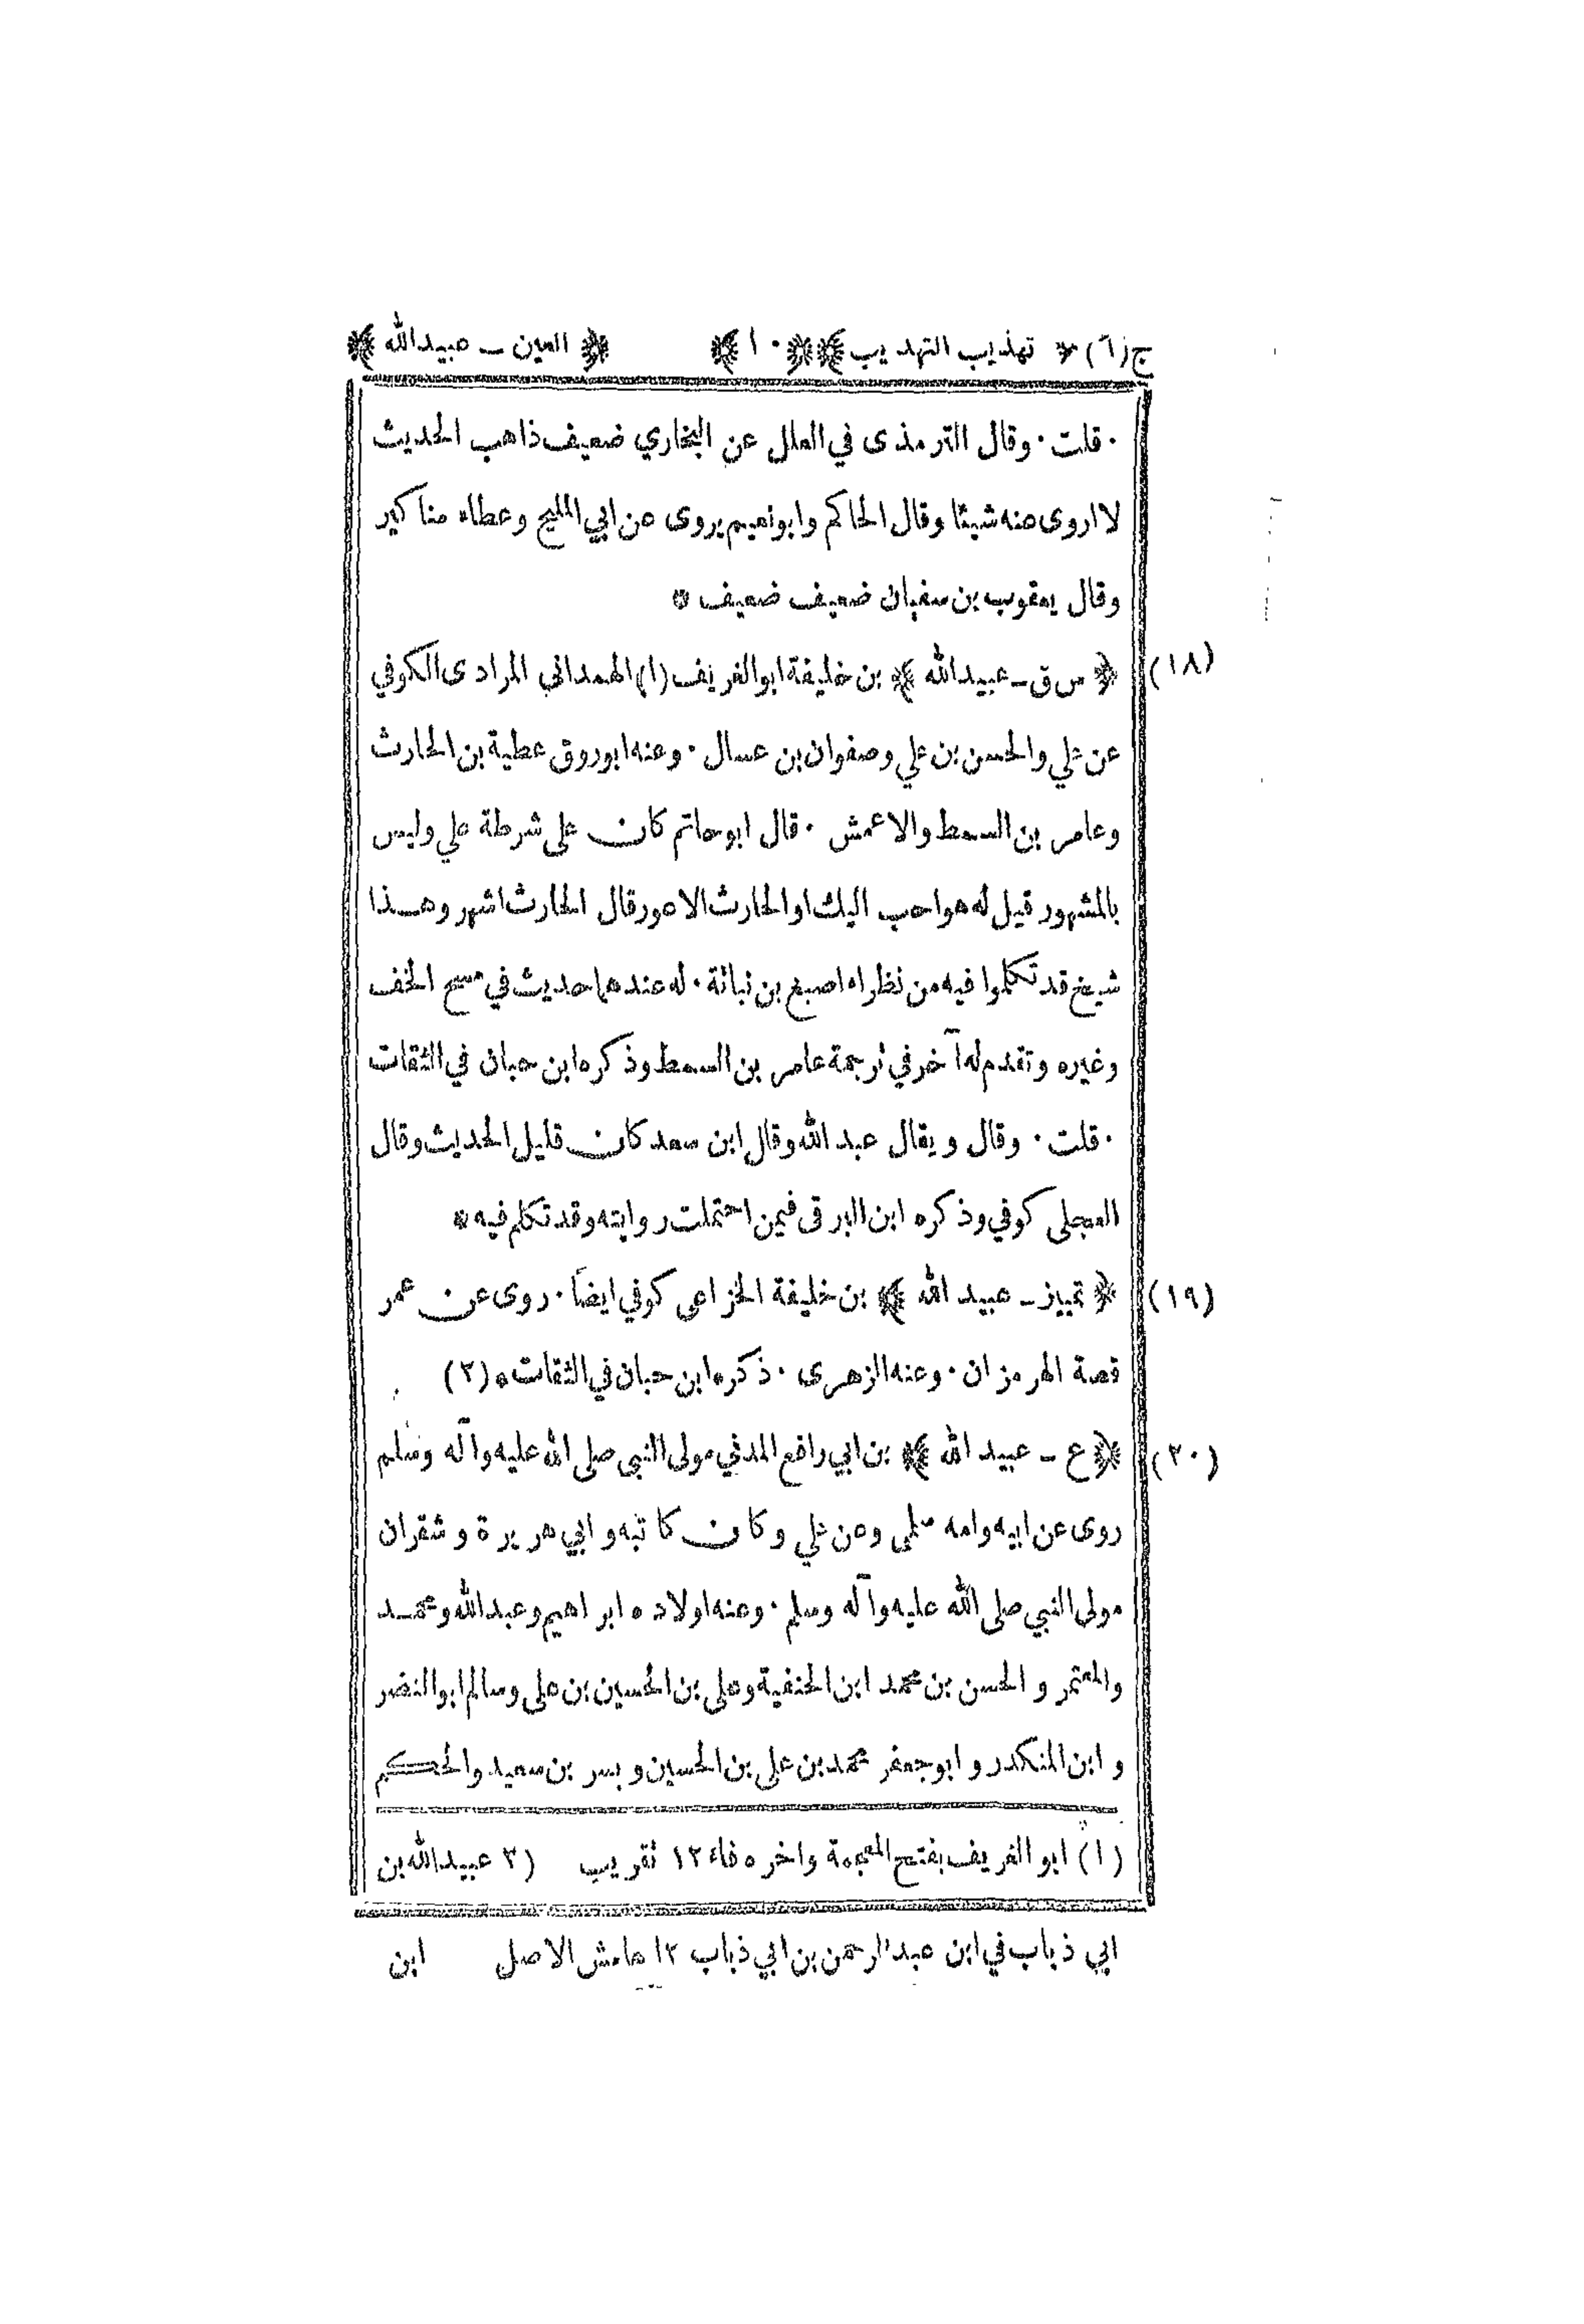 ج(٦) ﴿ تهذيب التهذيب ﴾ ﴿ ١٠ ﴾ ﴿ العين ـ عبيدالله ﴾
· قلت · وقال الترمذى في العلل عن البخاري ضعيف ذاهب الحديث
لا اروى عنه شيئا وقال الحاكم وابونعيم يروى عن ابي المليح وعطاء مناكير
وقال يعقوب بن سفيان ضعيف ضعيف *
(١٨) ﴿ س ق ـ عبيدالله ﴾ بن خليفة ابوالغريف (١) الهمداني المرادى الكوفي
عن علي والحسن بن علي وصفوان بن عسال · وعنه ابوروق عطية بن الحارث
وعامر بن السمط والاعمش · قال ابوحاتم كان على شرطة علي وليس
بالمشهور قيل له هواحب اليك اوالحارث الاعور قال الحارث اشهر وهذا
شيخ قد تكلموا فيه من نظراء اصبغ بن نباتة · له عندهما حديث في مسح الخف
وغيره وتقدم له آخر في ترجمة عامر بن السمط وذكره ابن حبان في الثقات
· قلت · وقال ويقال عبد الله وقال ابن سعد كان قليل الحديث وقال
العجلى كوفي وذكره ابن البرقى فيمن احتملت روايته وقد تكلم فيه *
(١٩) ﴿ تمييز ـ عبيد الله ﴾ بن خليفة الخزاعى كوفي ايضًا · روى عن عمر
قصة الهرمزان · وعنه الزهرى · ذكره ابن حبان في الثقات * (٢)
(٢٠) ﴿ ع ـ عبيد الله ﴾ بن ابي رافع المدني مولى النبي صلى الله عليه وآله وسلم
روى عن ابيه وامه سلمى وعن علي وكان كاتبه وابي هريرة وشقران
مولى النبي صلى الله عليه وآله وسلم · وعنه اولاده ابراهيم وعبدالله ومحمد
والمعتمر والحسن بن محمد ابن الحنفية وعلى بن الحسين بن على وسالم ابوالنضر
وابن المنكدر وابوجعفر محمد بن على بن الحسين وبسر بن سعيد والحكم
(١) ابوالغريف بفتح المعجمة واخره فاء ١٢ تقريب (٢ عبيدالله بن
ابي ذباب في ابن عبدالرحمن بن ابي ذباب ١٢ هامش الاصل ابن